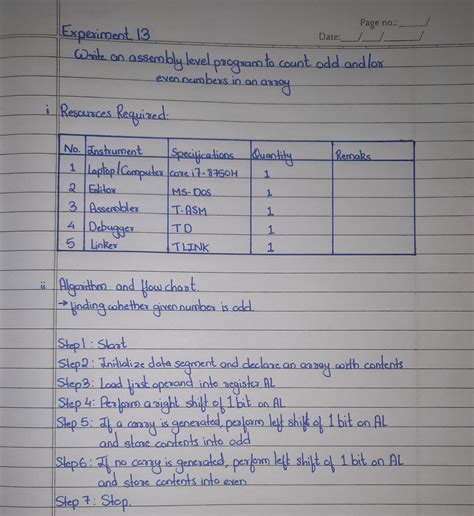 Page no.: /
Date: / / /
Experiment 13
Write an assembly level program to count odd and/or
even numbers in an array
i Resources Required:
No. Instrument Specifications Quantity Remaks
1 Laptop/Computer core i7-8750H 1
2 Editor MS-DOS 1
3 Assembler T-ASM 1
4 Debugger TD 1
5 Linker TLINK 1
ii Algorithm and flow chart.
→ finding whether given number is odd.
Step1: Start
Step2: Initialize data segment and declare an array with contents
Step3: Load first operand into register AL
Step 4: Perform a right shift of 1 bit on AL
Step 5: If a carry is generated, perform left shift of 1 bit on AL
and store contents into odd
Step6: If no carry is generated, perform left shift of 1 bit on AL
and store contents into even
Step 7: Stop.